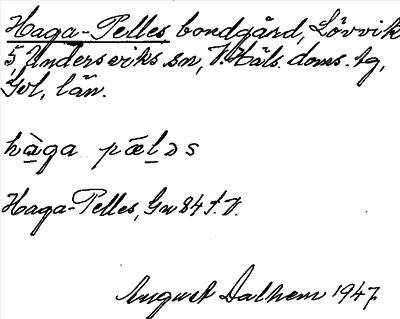 Haga-Pelles bondgård, Lövvik
5, Undersviks sn, V. Häls. doms. tg,
Gvl. län.
hàga pælǝs
Haga-Pelles, Gu 84 f. V.
August Dalhem 1947.